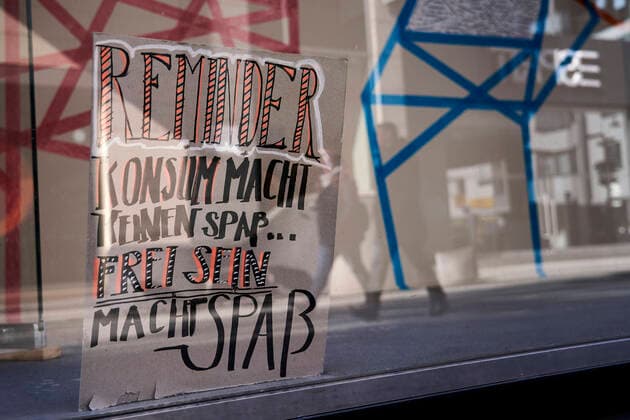 REMINDER
KONSUM MACHT
KEINEN SPAß...
FREI SEIN
MACHT SPAß